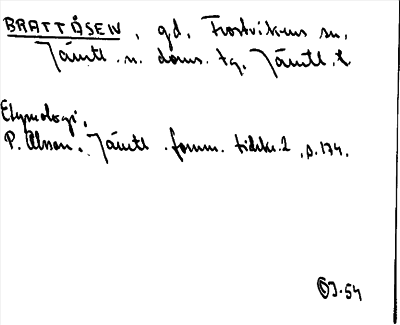 BRATTÅSEN, gd, Frostvikens sn.
Jämtl. n. doms. tg. Jämtl. l
Etymologi.
P. Olsson. Jämtl. fornm. tidskr. 2, s. 174.
OJ-54